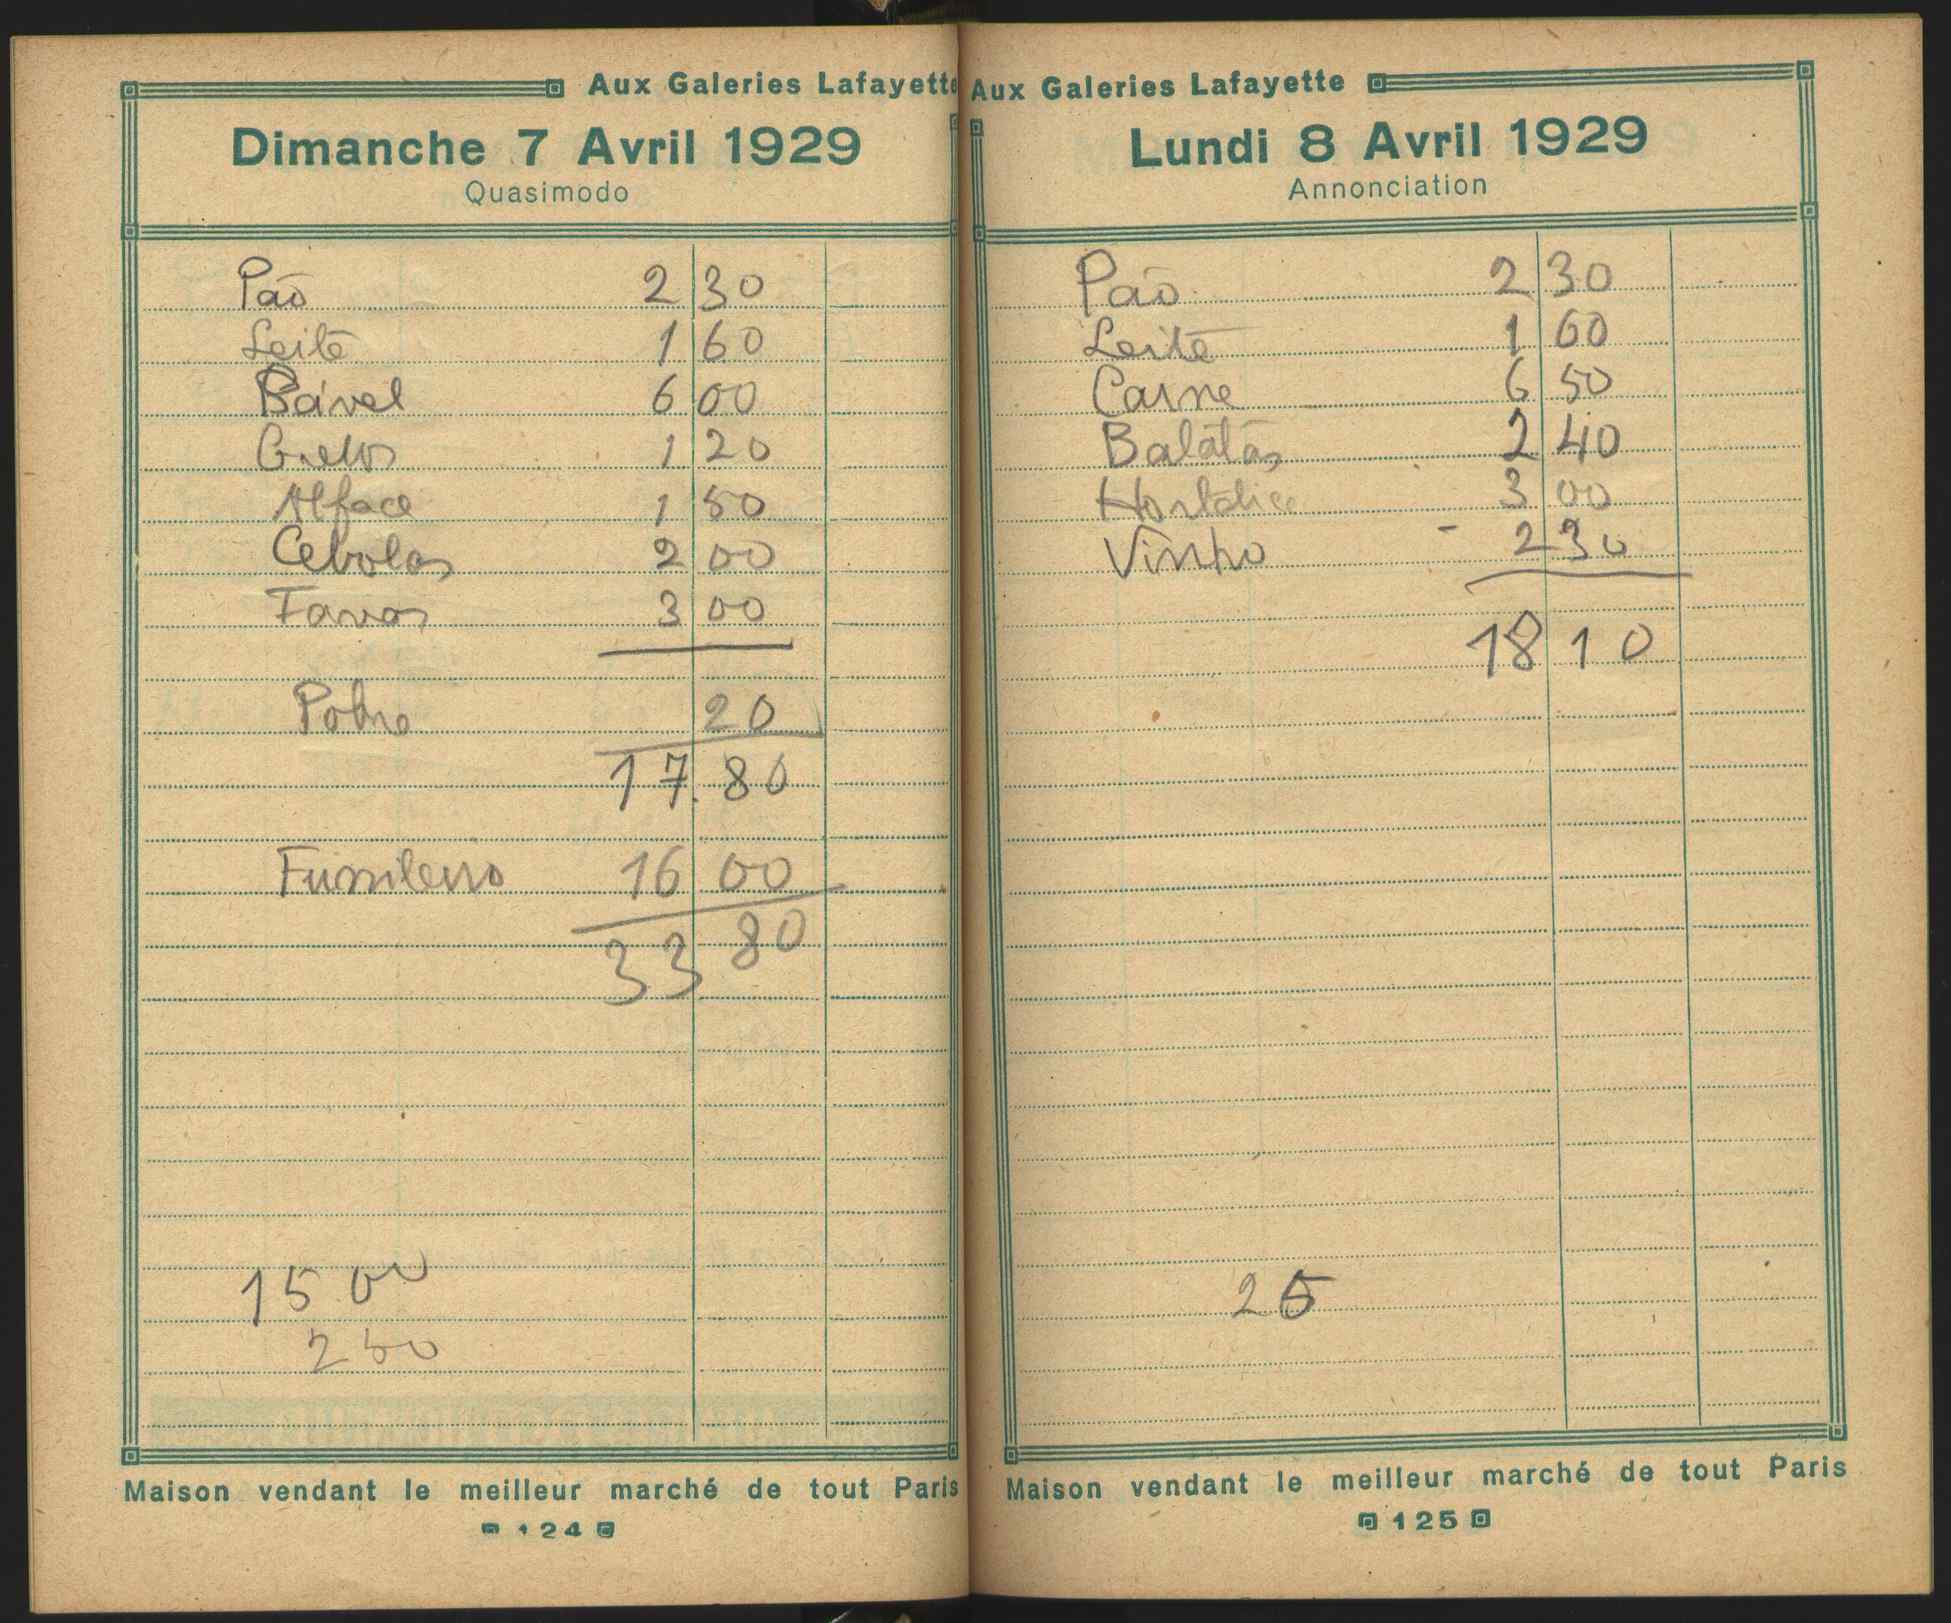 Aux Galeries Lafayette
Dimanche 7 Avril 1929
Quasimodo
Pão 2 30
Leite 1 60
Bável 6 00
Grelos 1 20
Alface 1 50
Cebolas 2 00
Favas 3 00
Pobre 20
17.80
Funileiro 16 00
33 80
15 00
2 50
Maison vendant le meilleur marché de tout Paris
124
Aux Galeries Lafayette
Lundi 8 Avril 1929
Annonciation
Pão 2 30
Leite 1 60
Carne 6 50
Batatas 2 40
Hortaliça 3 00
Vinho - 2 30
18 10
25
Maison vendant le meilleur marché de tout Paris
125